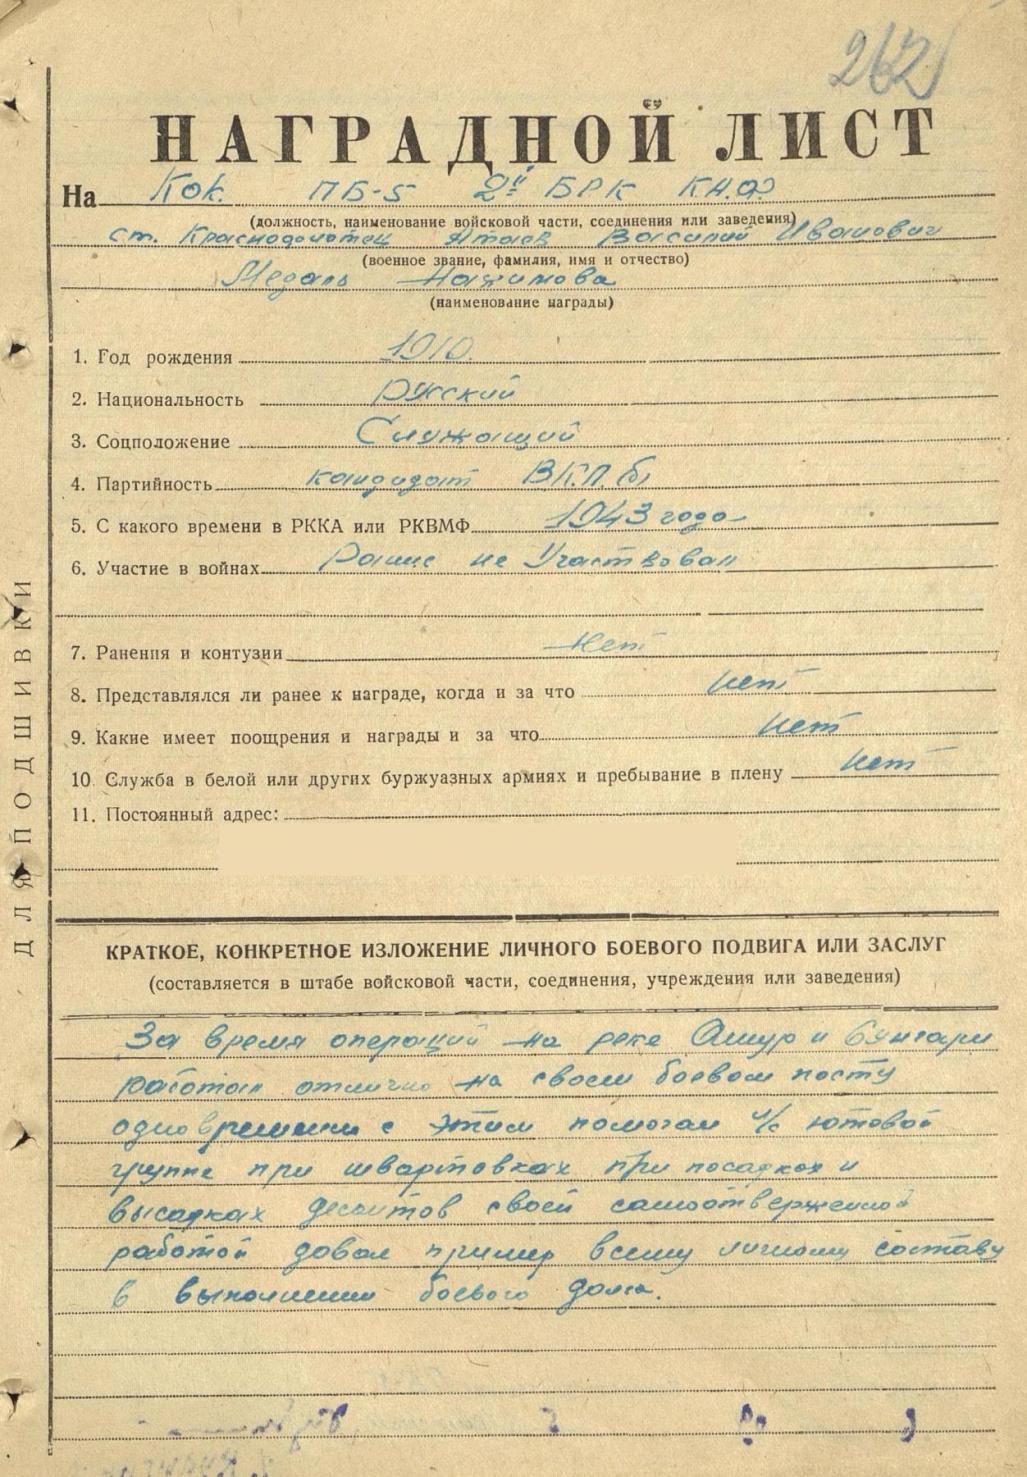 262
НАГРАДНОЙ ЛИСТ
На Кок. ПБ-5 2й БРК КАФ
(должность, наименование войсковой части, соединения или заведения)
ст. Краснофлотец Василий Иванович
(военное звание, фамилия, имя и отчество)
Медаль Нахимова
(наименование награды)
1. Год рождения 1910
2. Национальность Руский
3. Соцположение Служащий
4. Партийность кандидат ВКП.б)
5. С какого времени в РККА или РКВМФ 1943 года
6. Участие в войнах Ранне не Участвовал
7. Ранения и контузии Нет
8. Представлялся ли ранее к награде, когда и за что нет
9. Какие имеет поощрения и награды и за что нет
10. Служба в белой или других буржуазных армиях и пребывание в плену нет
11. Постоянный адрес:
ДЛЯ ПОДШИВКИ
КРАТКОЕ, КОНКРЕТНОЕ ИЗЛОЖЕНИЕ ЛИЧНОГО БОЕВОГО ПОДВИГА ИЛИ ЗАСЛУГ
(составляется в штабе войсковой части, соединения, учреждения или заведения)
За время операций на реке Амур и Сунгари
работал отлично на своем боевом посту
одновремени с этим помогал л/с ютовой
группе при швартовках при посадках и
высадках десантов своей самоотверженной
работой довал пример всему личному составу
в выполнении боевого долга.